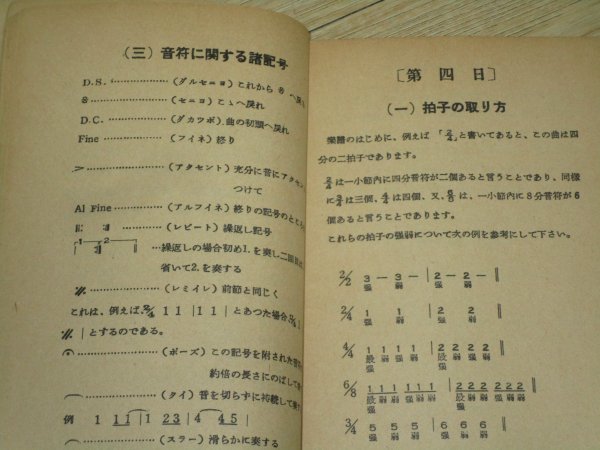 (三) 音符に関する諸記号
D.S. ………… (ダルセニョ) これから 𝄋 へ戻れ
𝄋 ………… (セニョ) こゝへ戻れ
D.C. ………… (ダカワポ) 曲の初頭へ戻れ
Fine ………… (フイネ) 終り
> ………… (アクセント) 充分に音にアクセン
つけて
Al Fine ………… (アルフイネ) 終りの記号のところ
………… (レピート) 繰返し記号
1 2 …繰返しの場合初め1.を奏し二回目は
省いて2.を奏する
………… (レミイレ) 前節と同じく
これは、例えば、2/4 1 1 | 1 1 | とあつた場合
| とするのである。
………… (ポーズ) この記号を附された音符
約倍の長さにのばして
………… (タイ) 音を切らずに持続して
例 1 1 1 | 1 2 3 | 4 4 5 |
………… (スラー) 滑らかに奏する
〔第四日〕
(一) 拍子の取り方
楽譜のはじめに、例えば「2/4」と書いてあると、この曲は四
分の二拍子であります。
2/4は一小節内に四分音符が二個あると言うことであり、同様
に3/4は三個、4/4は四個、又、6/8は、一小節内に8分音符が6
個あると言うことであります。
これらの拍子の強弱について次の例を参考にして下さい。
2/2 3 – 3 – | 2 – 2 – ‖
強 弱 強 弱
2/4 1 1 | 2 2 ‖
強 弱 強 弱
4/4 1 1 1 1 | 2 2 2 2 ‖
最強 弱 強 弱 最強 弱 強 弱
6/8 1 1 1 1 1 1 | 2 2 2 2 2 2 ‖
最強 弱 弱 強 弱 弱 最強 弱 弱 強 弱 弱
3/4 5 5 5 | 6 6 6 ‖
強 弱 弱 強 弱 弱